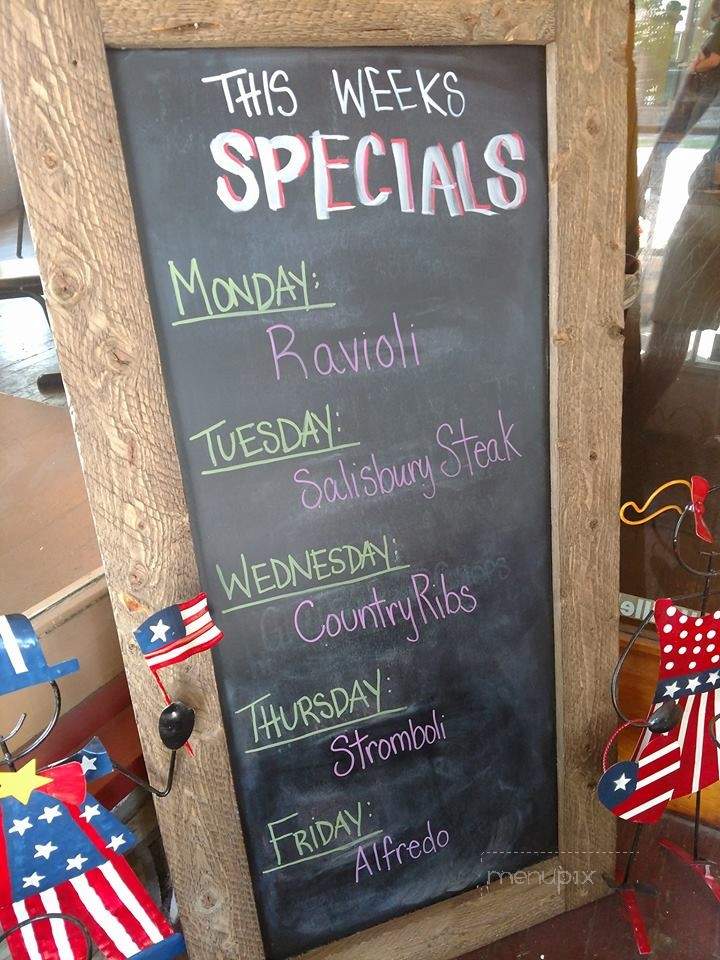 THIS WEEKS
SPECIALS
MONDAY:
Ravioli
TUESDAY:
Salisbury Steak
WEDNESDAY:
Country Ribs
THURSDAY:
Stromboli
FRIDAY:
Alfredo
menupix